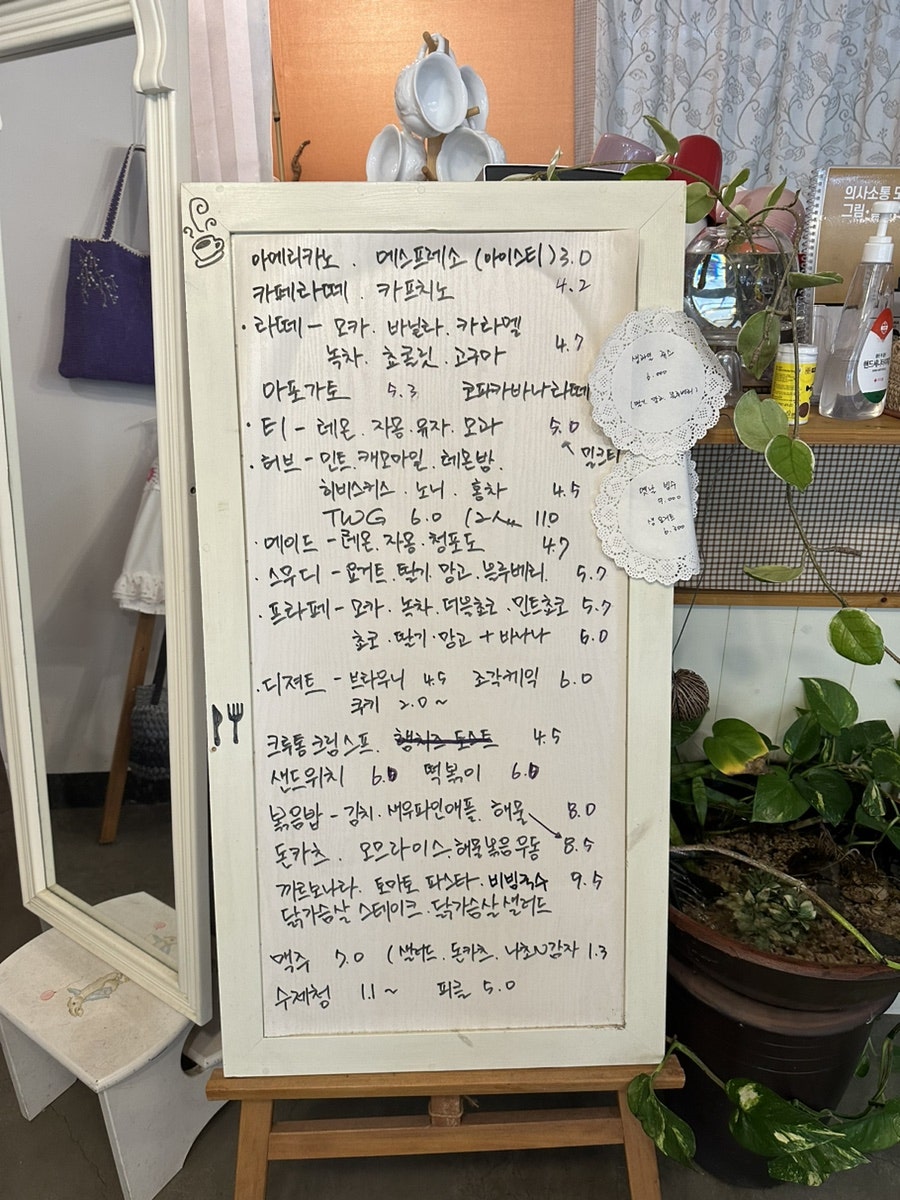 아메리카노 . 에스프레소 (아이스티) 3.0
카페라떼 . 카프치노 4.2
· 라떼 - 모카 . 바닐라 . 카라멜
녹차 . 쵸콜릿 . 고구마 4.7
아포가토 5.3 코파카바나라떼
· 티 - 레몬 . 자몽 . 유자 . 모과 5.0
밀크티
· 허브 - 민트 . 캐모마일 . 레몬밤 .
히비스커스 . 노니 . 홍차 4.5
TWG 6.0
· 에이드 - 레몬 . 자몽 . 청포도 4.7
· 스무디 - 요거트 . 딸기 . 망고 . 블루베리 . 5.7
· 프라페 - 모카 . 녹차 . 더블쵸코 . 민트쵸코 5.7
쵸코 . 딸기 . 망고 + 바나나 6.0
· 디져트 - 브라우니 4.5 조각케익 6.0
쿠키 2.0 ~
크루통 크림스프 . 햄치즈 토스트 4.5
샌드위치 6.0 떡볶이 6.0
볶음밥 - 김치 . 새우파인애플 . 해물 8.0
돈카츠 . 오므라이스 . 해물볶음우동 8.5
까르보나라 . 토마토 파스타 . 비빔국수 9.5
닭가슴살 스테이크 . 닭가슴살샐러드
맥주 7.0 (샐러드 . 돈카츠 . 나쵸N감자 1.3
수제청 1.1 ~ 피클 5.0
생과일 쥬스
6.000
옛날 빙수
9.000
생 요거트
의사소통
그림